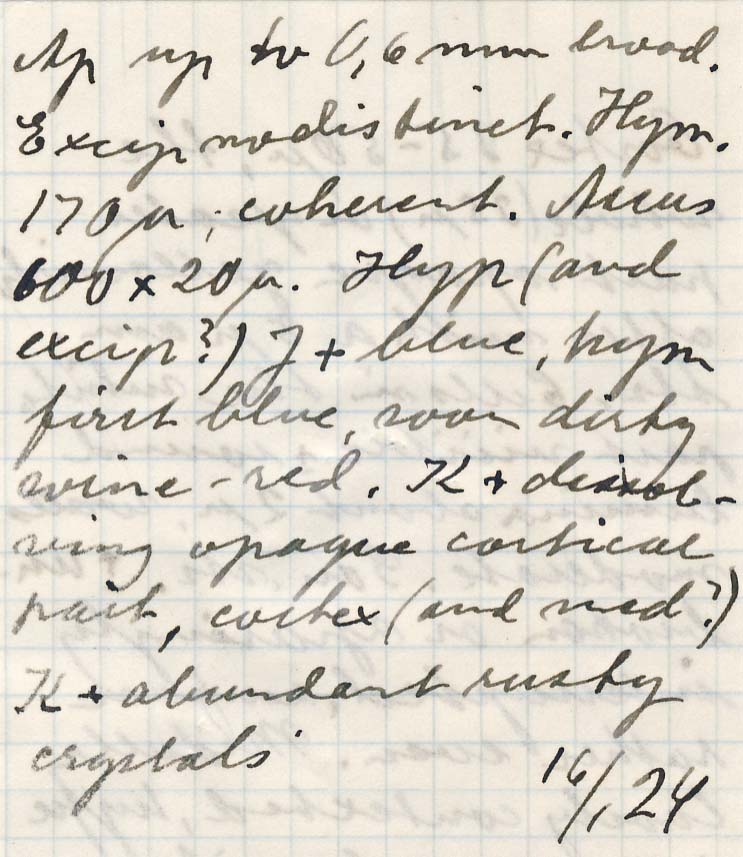 Ap up to 0,6 mm broad.
Excip nodistinct. Hym.
170 µ; coherent. Ascus
600 x 20 µ. Hyp (and
excip?) J + blue, hym
first blue, soon dirty
wine-red. K + dissol-
ving opaque cortical
part, cortex (and med?)
K + abundant rusty
crystals
16/1 24